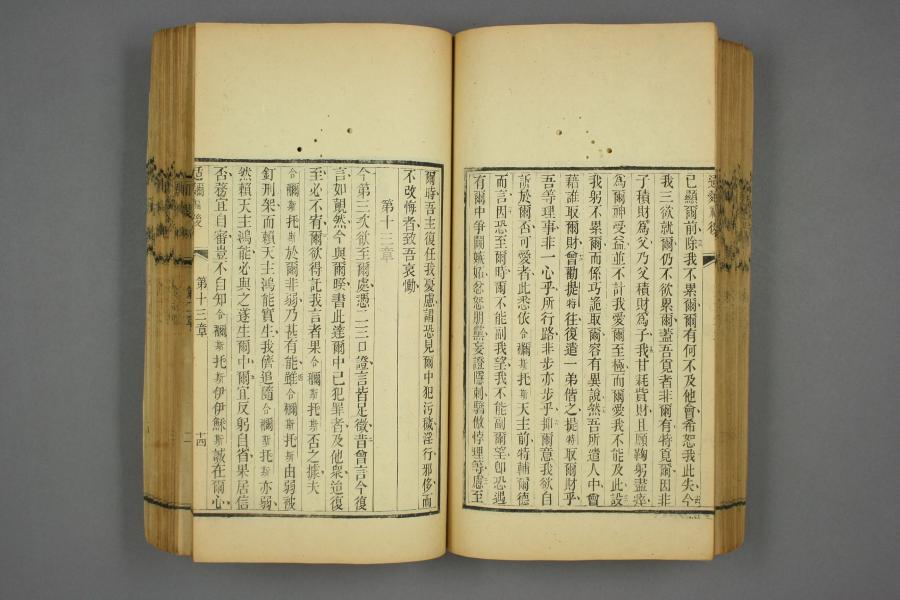 已顯爾前除我不累爾爾有何不及他會希恕我此失今
我三欲就爾仍不欲累爾蓋吾覓者非爾有特覓爾因非
子積財為父乃父積財為子我甘耗貲財且願鞠躬盡瘁
為爾神受益並不計我愛爾至極而爾愛我不能及此設
我躬不累爾而係巧詭取爾容有異說然吾所遣人中曾
藉誰取爾財曾勸提特往復遣一弟偕之提特取爾財乎
吾等理事非一心乎所行路非步亦步乎抑爾意我欲自
訴於爾否可愛者此悉依合禰斯托斯天主前特輔爾德
而言因恐至爾時爾不能副我望我不能副爾望卽恐遇
有爾中爭鬪嫉妬忿怒朋黨妄證隱刺驕傲悖理等慮至
爾時吾主復任我憂慮謂恐見爾中犯污穢淫行邪侈而
不改悔者致吾哀慟
第十三章
今第三次欲至爾處憑二三口證言皆足徵昔曾言今復
言如覿然今與爾睽書此達爾中已犯罪者及他衆迨復
至必不宥爾欲得託我言者果合禰斯托斯否之據夫
合禰斯托斯於爾非弱乃甚有能雖合禰斯托斯由弱被
釘刑架而賴天主鴻能實生我儕追隨合禰斯托斯亦弱
然賴天主鴻能必與之遂生爾中爾宜反躬自省果居信
否務宜自審豈不自知合禰斯托斯伊伊穌斯誠在爾心
第十三章
十四